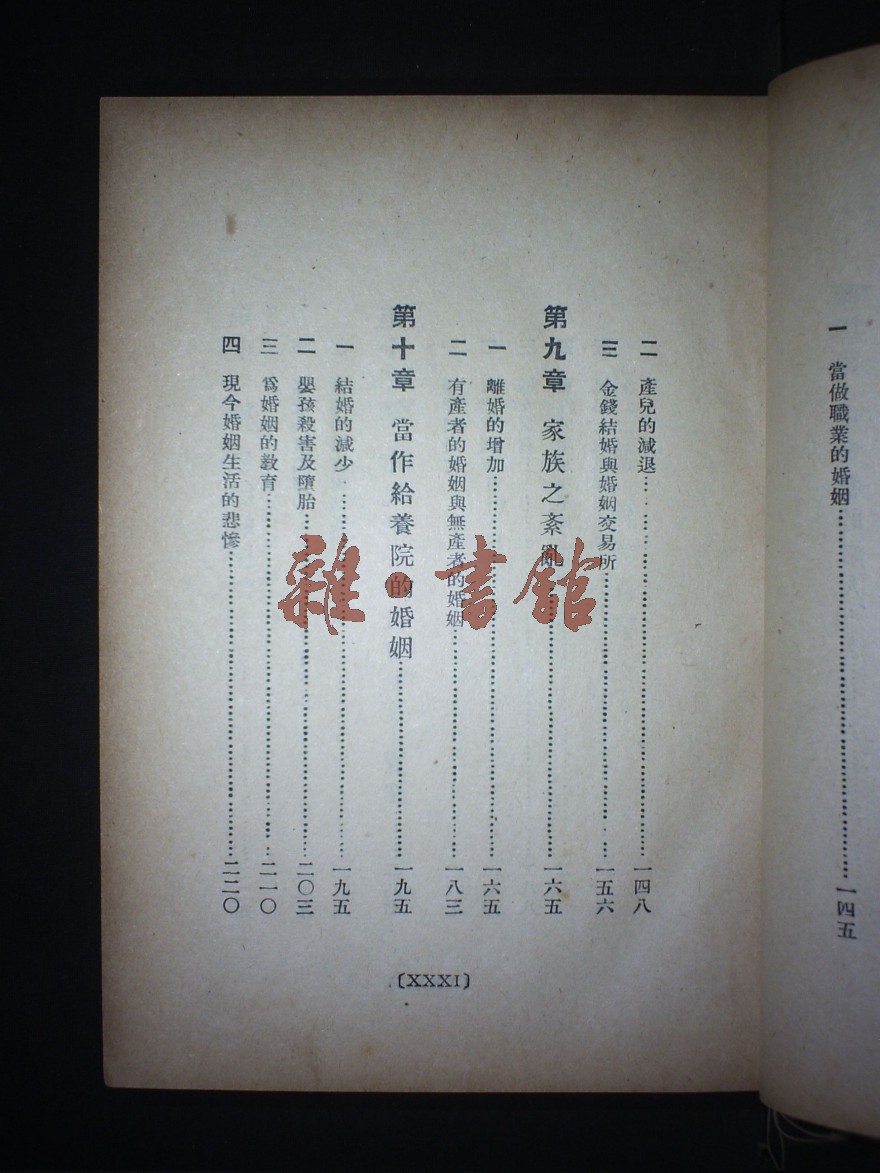 一 當做職業的婚姻……一四五
二 產兒的減退……一四八
三 金錢結婚與婚姻交易所……一五六
第九章 家族之紊亂……一六五
一 離婚的增加……一六五
二 有產者的婚姻與無產者的婚姻……一八三
第十章 當作給養院的婚姻……一九五
一 結婚的減少……一九五
二 嬰孩殺害及墮胎……二〇三
三 爲婚姻的教育……二一〇
四 現今婚姻生活的悲慘……二二〇
〔XXXI〕
雜·書館